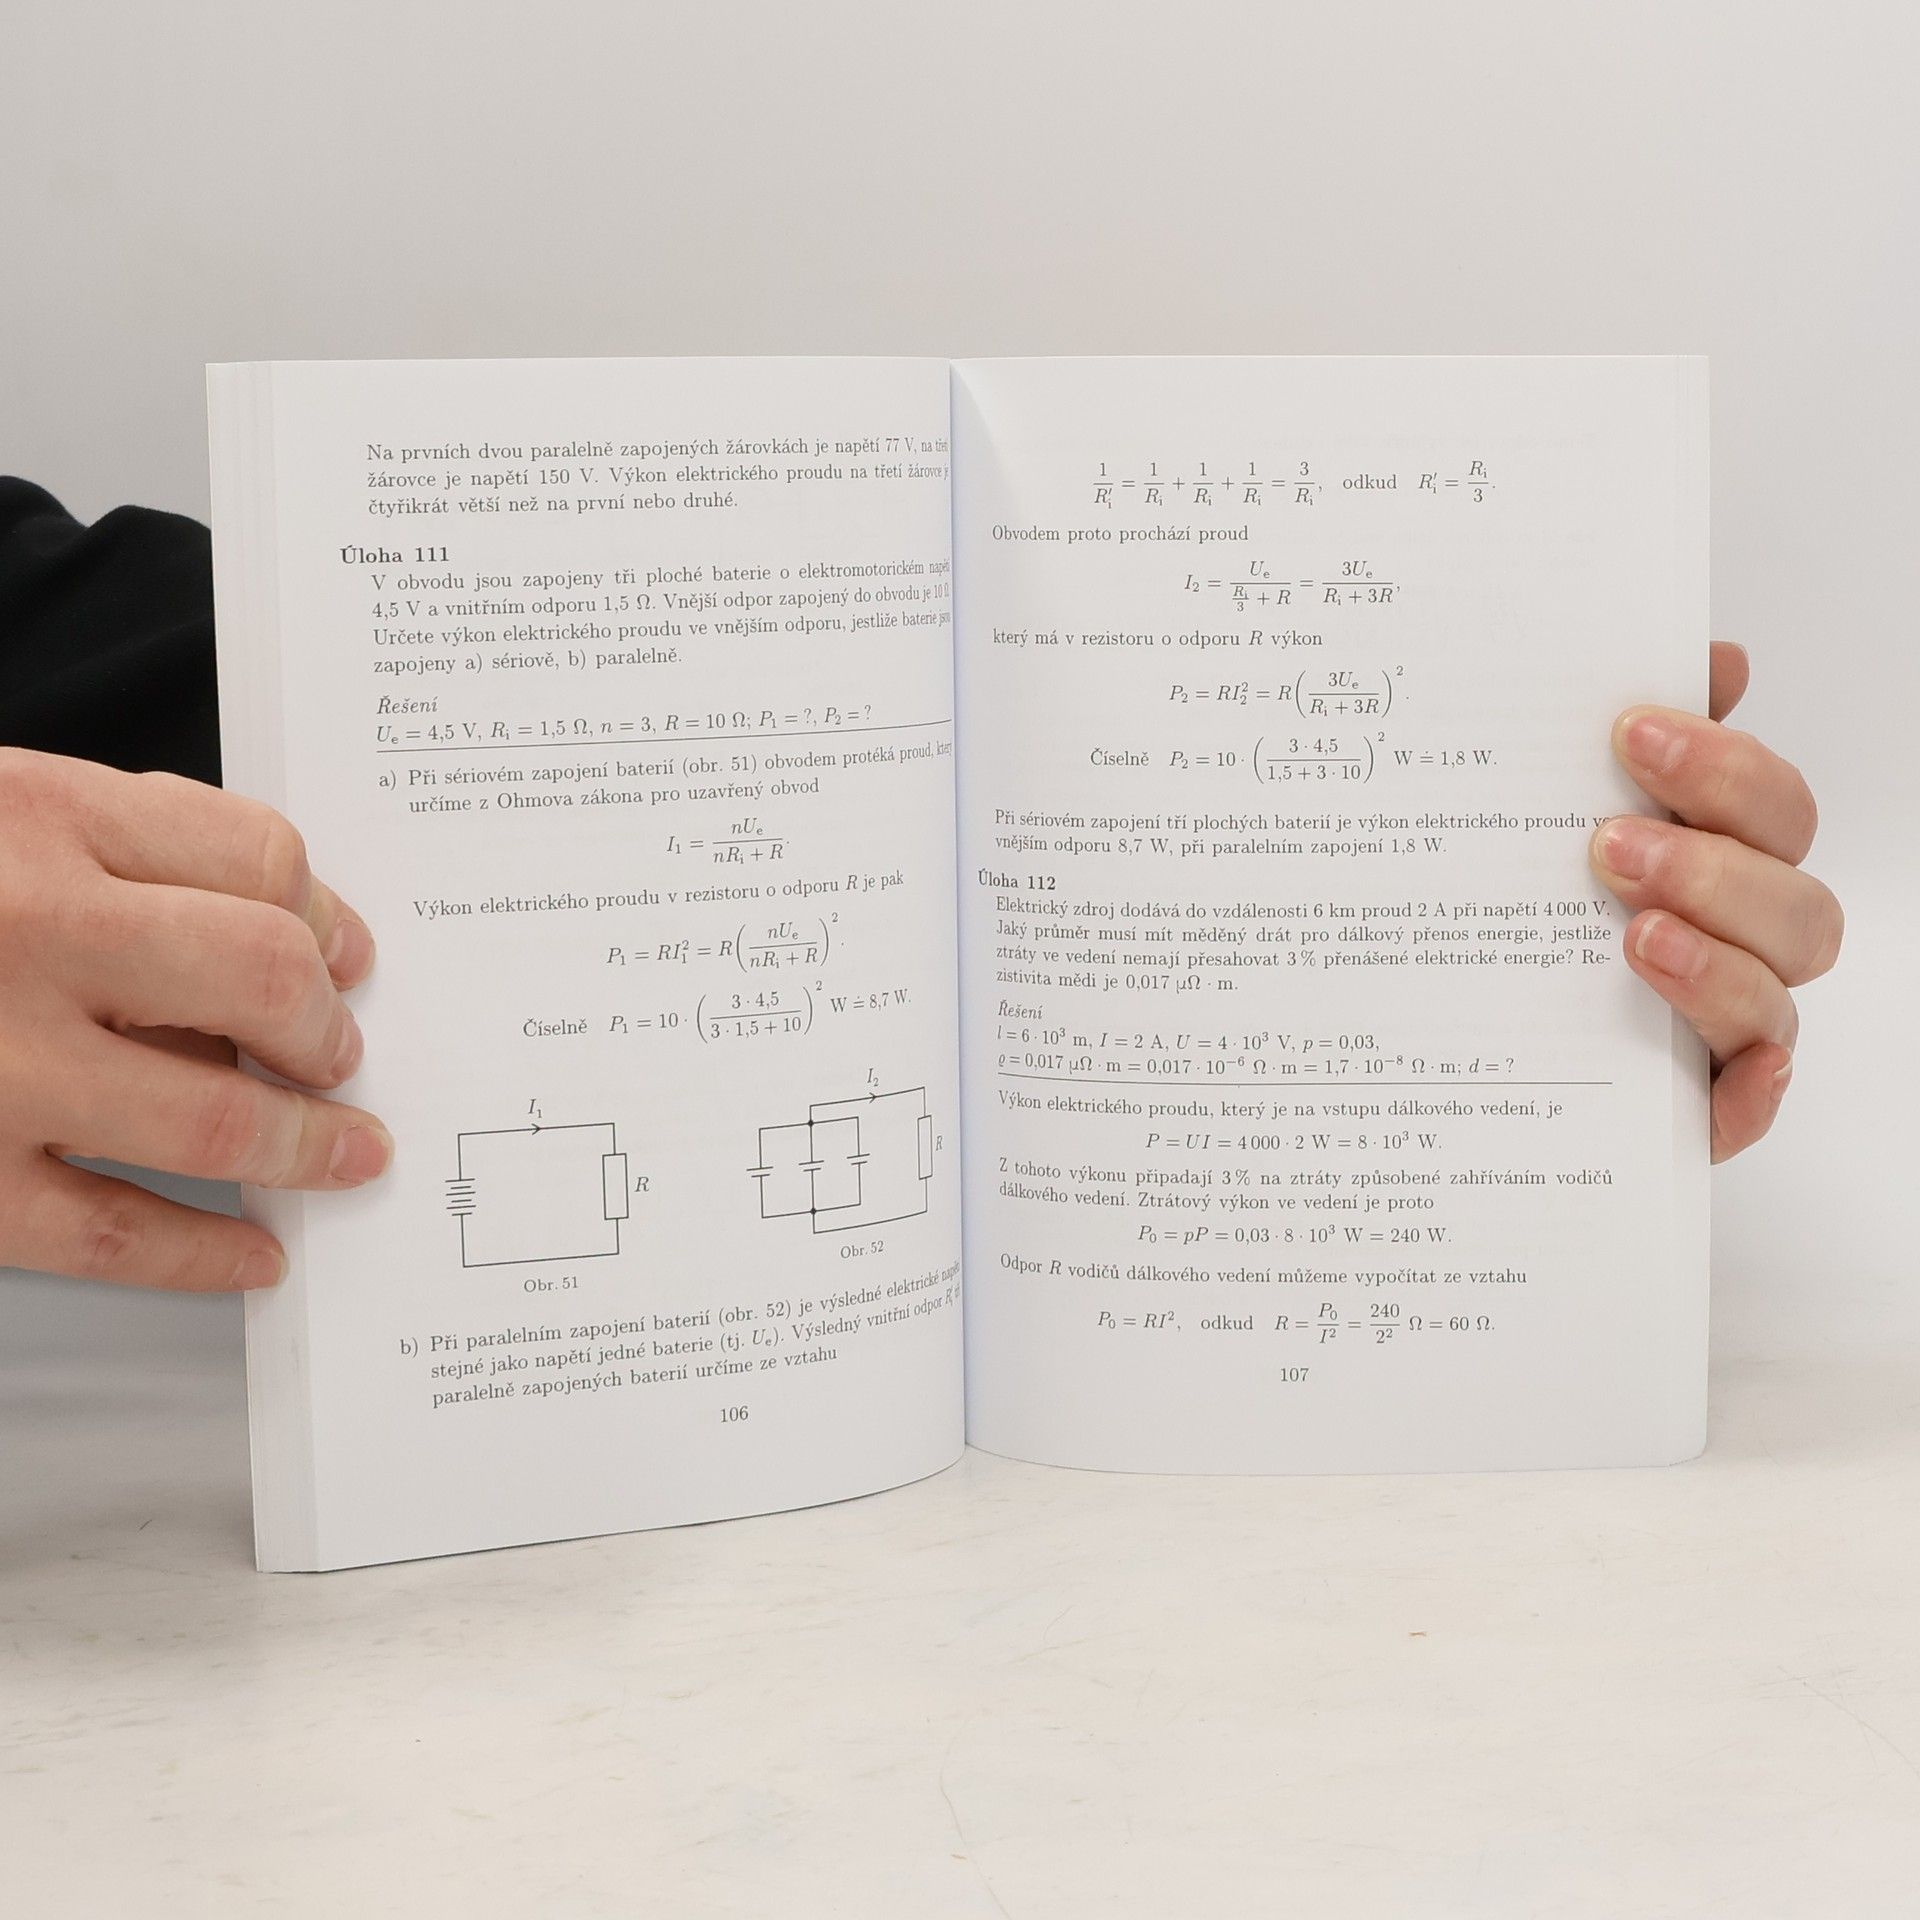 Na prvních dvou paralelně zapojených žárovkách je napětí 77 V, na třetí
žárovce je napětí 150 V. Výkon elektrického proudu na třetí žárovce je
čtyřikrát větší než na první nebo druhé.
Úloha 111
V obvodu jsou zapojeny tři ploché baterie o elektromotorickém napětí
4,5 V a vnitřním odporu 1,5 Ω. Vnější odpor zapojený do obvodu je 10 Ω.
Určete výkon elektrického proudu ve vnějším odporu, jestliže baterie jsou
zapojeny a) sériově, b) paralelně.
Řešení
Uₑ = 4,5 V, Rᵢ = 1,5 Ω, n = 3, R = 10 Ω; P₁ = ?, P₂ = ?
a) Při sériovém zapojení baterií (obr. 51) obvodem protéká proud, který
určíme z Ohmova zákona pro uzavřený obvod
I₁ = nUₑ / (nRᵢ + R).
Výkon elektrického proudu v rezistoru o odporu R je pak
P₁ = RI₁² = R(nUₑ / (nRᵢ + R))².
Číselně P₁ = 10 · (3 · 4,5 / (3 · 1,5 + 10))² W ≐ 8,7 W.
I₁
R
Obr. 51
I₂
R
Obr. 52
b) Při paralelním zapojení baterií (obr. 52) je výsledné elektrické napětí
stejné jako napětí jedné baterie (tj. Uₑ). Výsledný vnitřní odpor Rᵢ′
paralelně zapojených baterií určíme ze vztahu
106
1/Rᵢ′ = 1/Rᵢ + 1/Rᵢ + 1/Rᵢ = 3/Rᵢ, odkud Rᵢ′ = Rᵢ/3.
Obvodem proto prochází proud
I₂ = Uₑ / (Rᵢ/3 + R) = 3Uₑ / (Rᵢ + 3R),
který má v rezistoru o odporu R výkon
P₂ = RI₂² = R(3Uₑ / (Rᵢ + 3R))².
Číselně P₂ = 10 · (3 · 4,5 / (1,5 + 3 · 10))² W ≐ 1,8 W.
Při sériovém zapojení tří plochých baterií je výkon elektrického proudu ve
vnějším odporu 8,7 W, při paralelním zapojení 1,8 W.
Úloha 112
Elektrický zdroj dodává do vzdálenosti 6 km proud 2 A při napětí 4 000 V.
Jaký průměr musí mít měděný drát pro dálkový přenos energie, jestliže
ztráty ve vedení nemají přesahovat 3 % přenášené elektrické energie? Re-
zistivita mědi je 0,017 μΩ · m.
Řešení
l = 6 · 10³ m, I = 2 A, U = 4 · 10³ V, p = 0,03,
ϱ = 0,017 μΩ · m = 0,017 · 10⁻⁶ Ω · m = 1,7 · 10⁻⁸ Ω · m; d = ?
Výkon elektrického proudu, který je na vstupu dálkového vedení, je
P = UI = 4 000 · 2 W = 8 · 10³ W.
Z tohoto výkonu připadají 3 % na ztráty způsobené zahříváním vodičů
dálkového vedení. Ztrátový výkon ve vedení je proto
P₀ = pP = 0,03 · 8 · 10³ W = 240 W.
Odpor R vodičů dálkového vedení můžeme vypočítat ze vztahu
P₀ = RI², odkud R = P₀/I² = 240/2² Ω = 60 Ω.
107